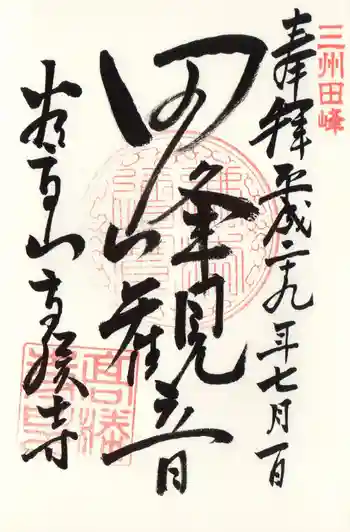 三州田峰
奉拜 平成二十九年七月一日
田峰観音
谷高山高勝寺